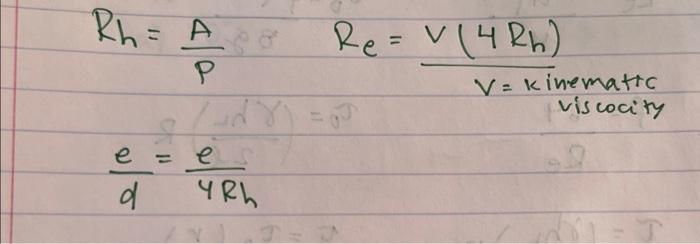 Rh = A/P
Re = V(4Rh)/
V = kinematic
viscocity
e/d = e/4Rh